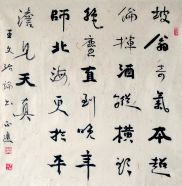 坡翁奇氣本超
倫揮洒縱橫欲
絕塵直到晚年
師北海更於平
澹見天真
王文治論書